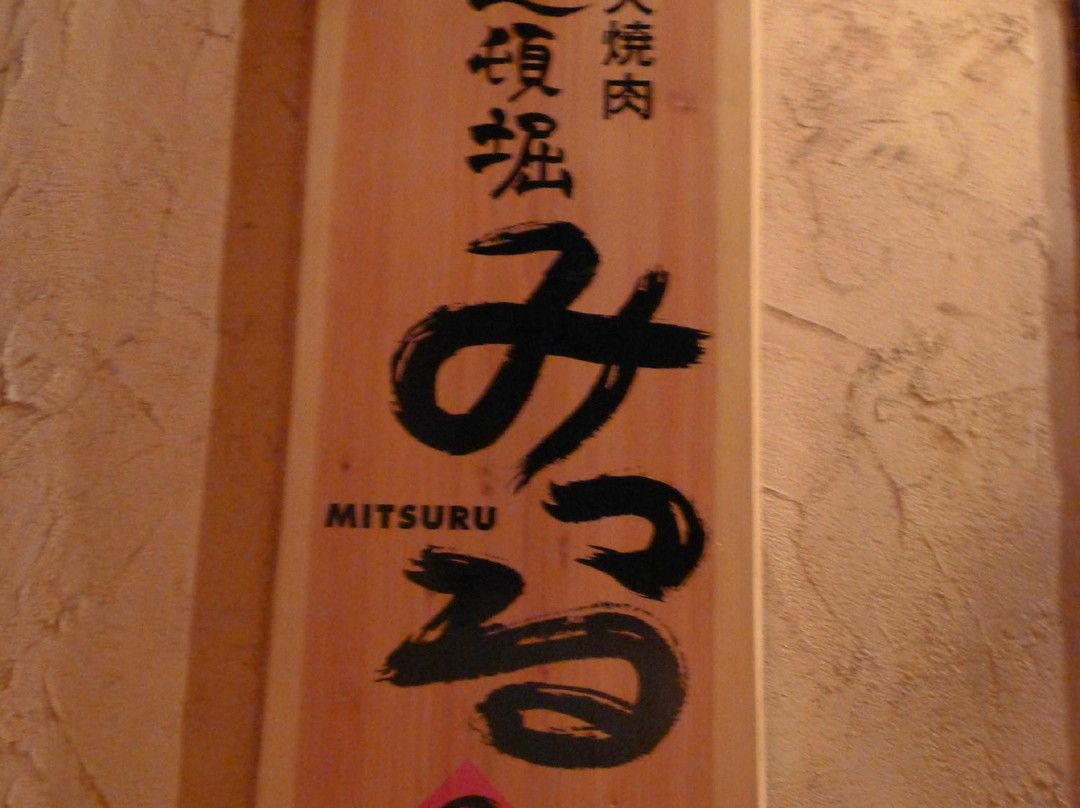 焼肉
道頓堀
みつる
MITSURU